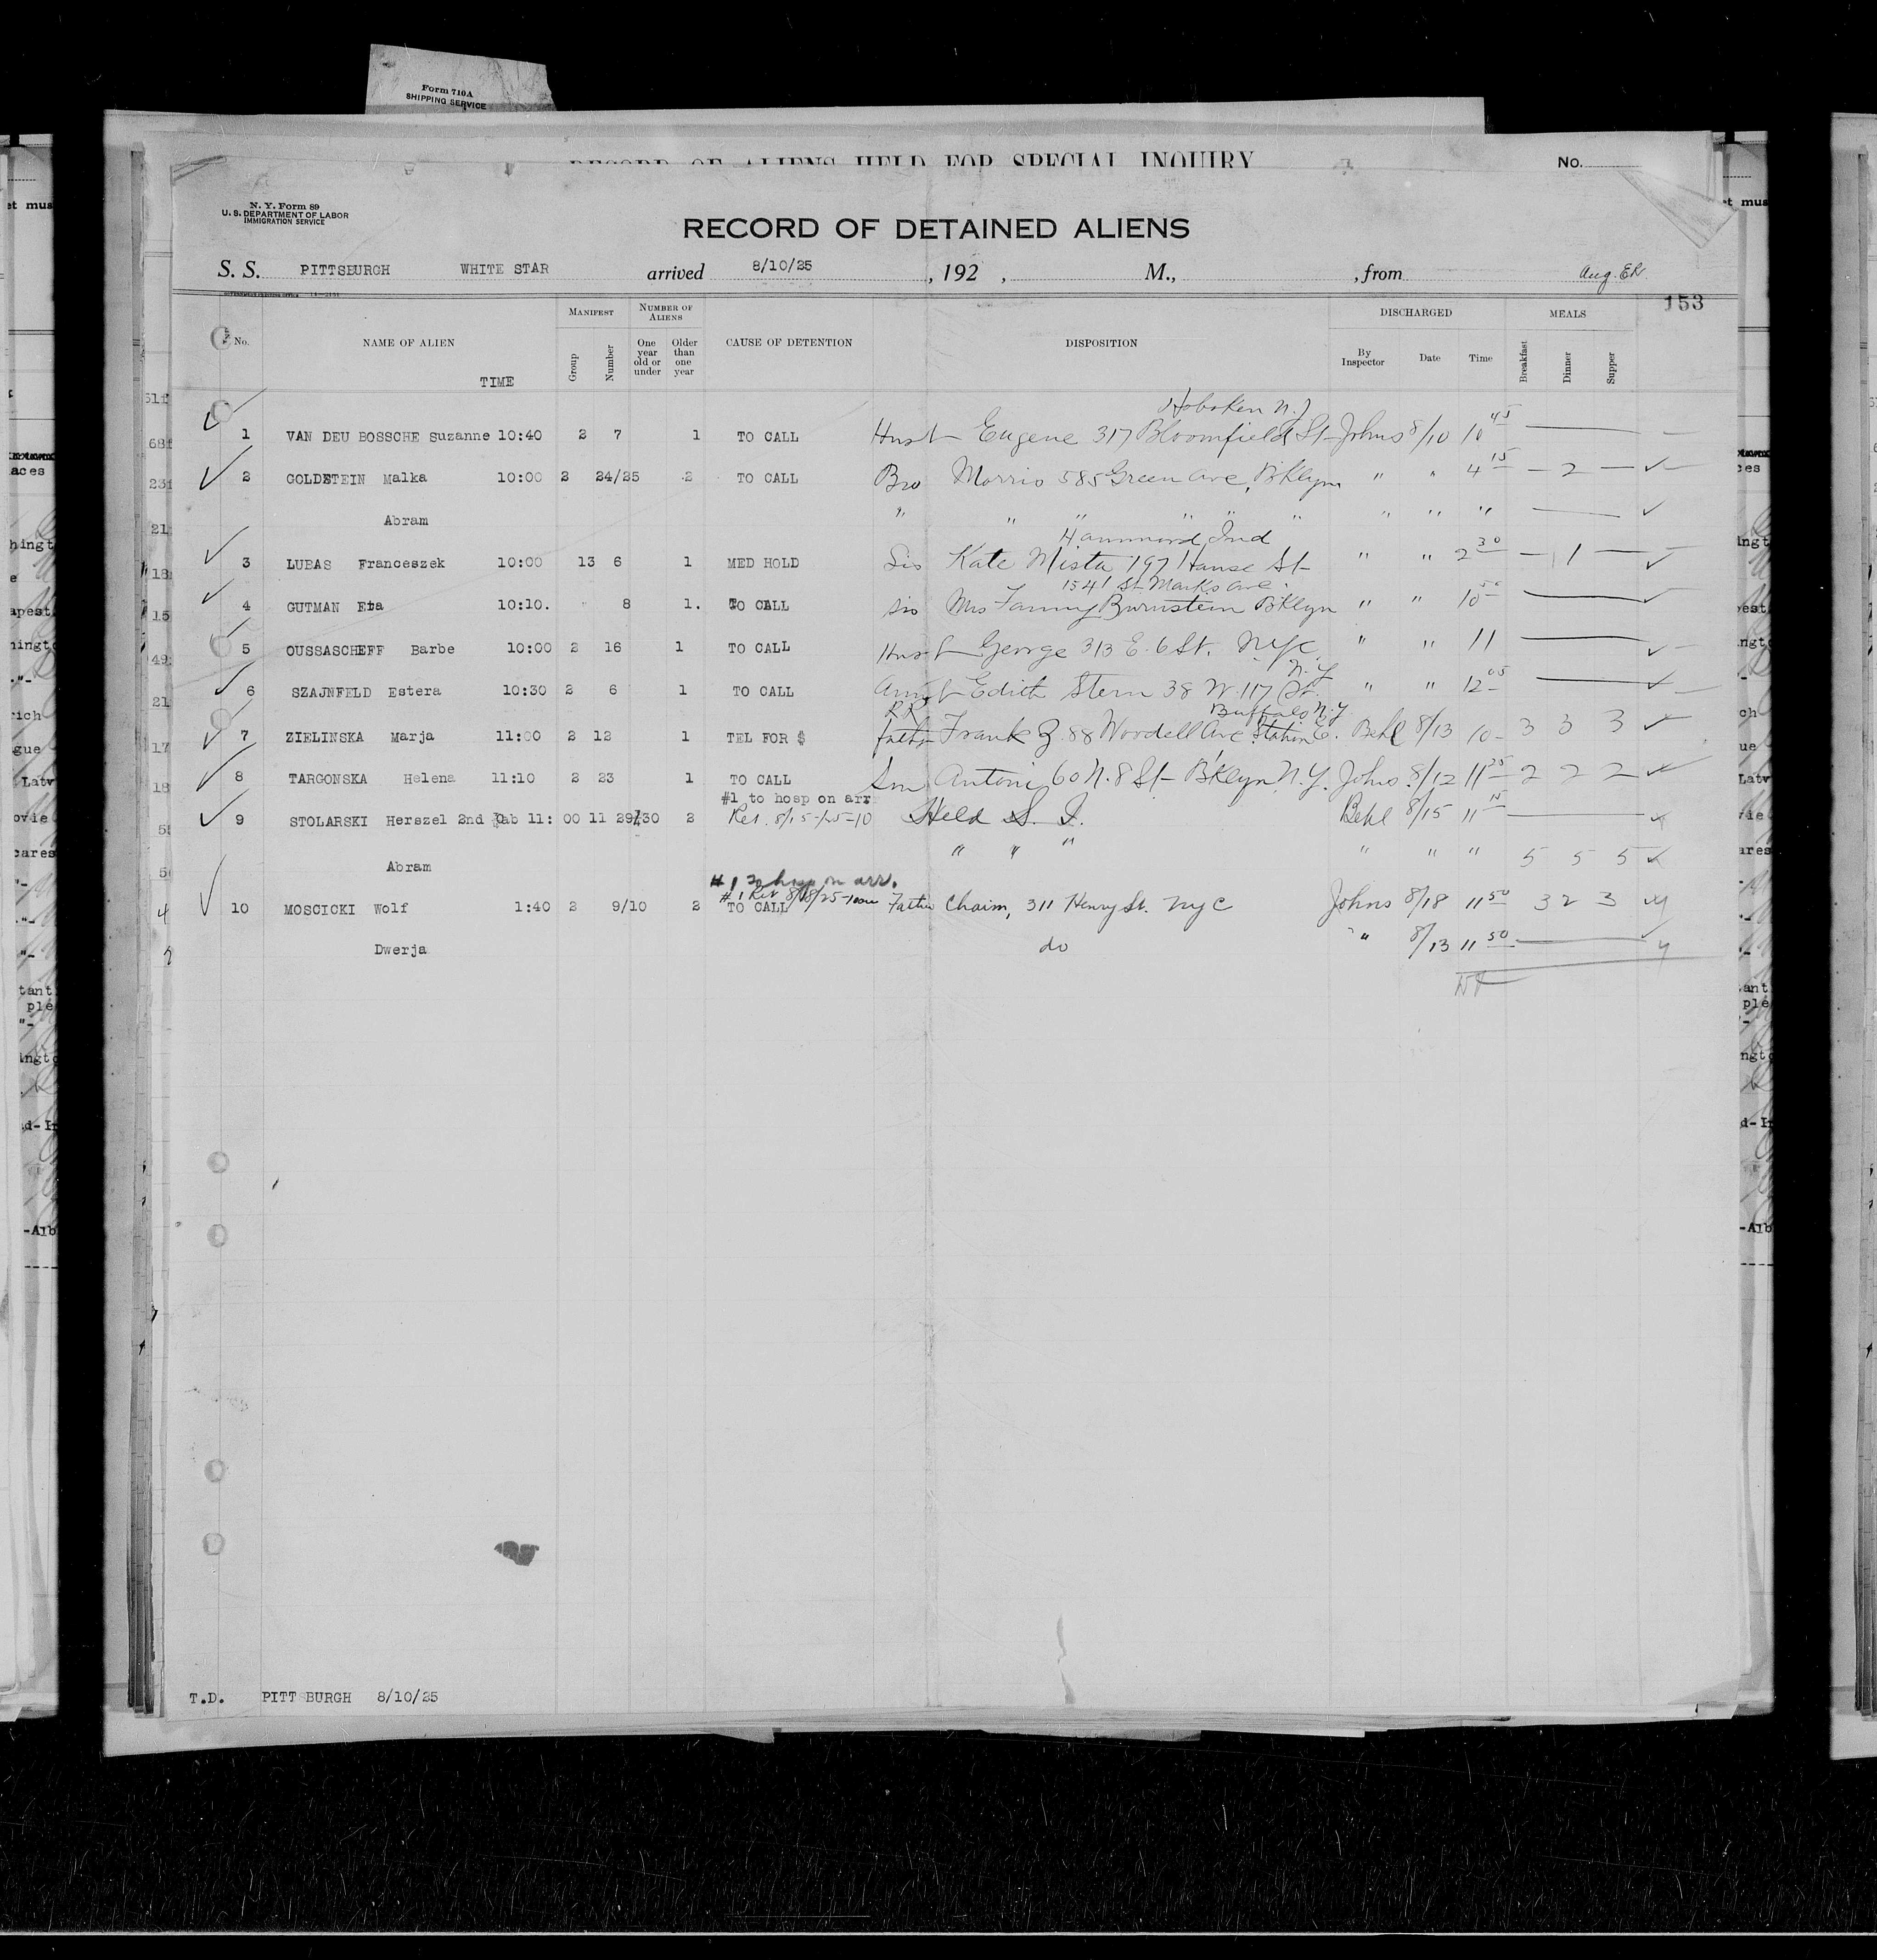 Form 710A
SHIPPING SERVICE
RECORD OF ALIENS HELD FOR SPECIAL INQUIRY No.
N. Y. Form 89
U. S. DEPARTMENT OF LABOR
IMMIGRATION SERVICE
RECORD OF DETAINED ALIENS
S. S. PITTSBURGH WHITE STAR arrived 8/10/25, 192 , M., , from Aug. ER
153
No. NAME OF ALIEN TIME MANIFEST Group Number NUMBER OF ALIENS One year old or under Older than one year CAUSE OF DETENTION DISPOSITION DISCHARGED By Inspector Date Time MEALS Breakfast Dinner Supper
Hoboken N.J
1 VAN DEU BOSSCHE Suzanne 10:40 2 7 1 TO CALL Husb Eugene 317 Bloomfield St Johns 8/10 10 45
2 GOLDSTEIN Malka 10:00 2 24/25 2 TO CALL Bro Morris 585 Green Ave, Bklyn " " 4 15 — 2 —
Abram " " " " " " " "
Hammond Ind
3 LUBAS Franceszek 10:00 13 6 1 MED HOLD Sis Kate Mista 197 Hanse St " " 2 30 — 1 —
1541 St Marks Ave
4 GUTMAN Eta 10:10. " 8 1. TO CALL sis Mrs Fanny Burnstein Bklyn " " 10 50
5 OUSSASCHEFF Barbe 10:00 2 16 1 TO CALL Husb George 313 E. 6 St. NYC " " 11
N.Y
6 SZAJNFELD Estera 10:30 2 6 1 TO CALL Aunt Edith Stern 38 W. 117 St. " " 12 05
RR Buffalo N.Y
7 ZIELINSKA Marja 11:00 2 12 1 TEL FOR $ father Frank Z. 88 Woodell Ave Station E. Behl 8/13 10 3 3 3
8 TARGONSKA Helena 11:10 2 23 1 TO CALL Son Antoni 60 N. 8 St Bklyn N.Y. Johns 8/12 11 25 2 2 2
#1 to hosp on arr
9 STOLARSKI Herszel 2nd Cab 11:00 11 29/30 2 Ret. 8/15-/25-10 Held S. I. Behl 8/15 11 15
Abram " " " " " " 5 5 5
#1 to hosp on arr.
#1 Ret 8/18/25-10am
10 MOSCICKI Wolf 1:40 2 9/10 2 TO CALL Father Chaim, 311 Henry St. NYC Johns 8/18 11 50 3 2 3
Dwerja do " 8/13 11 50
T.D. PITTSBURGH 8/10/25